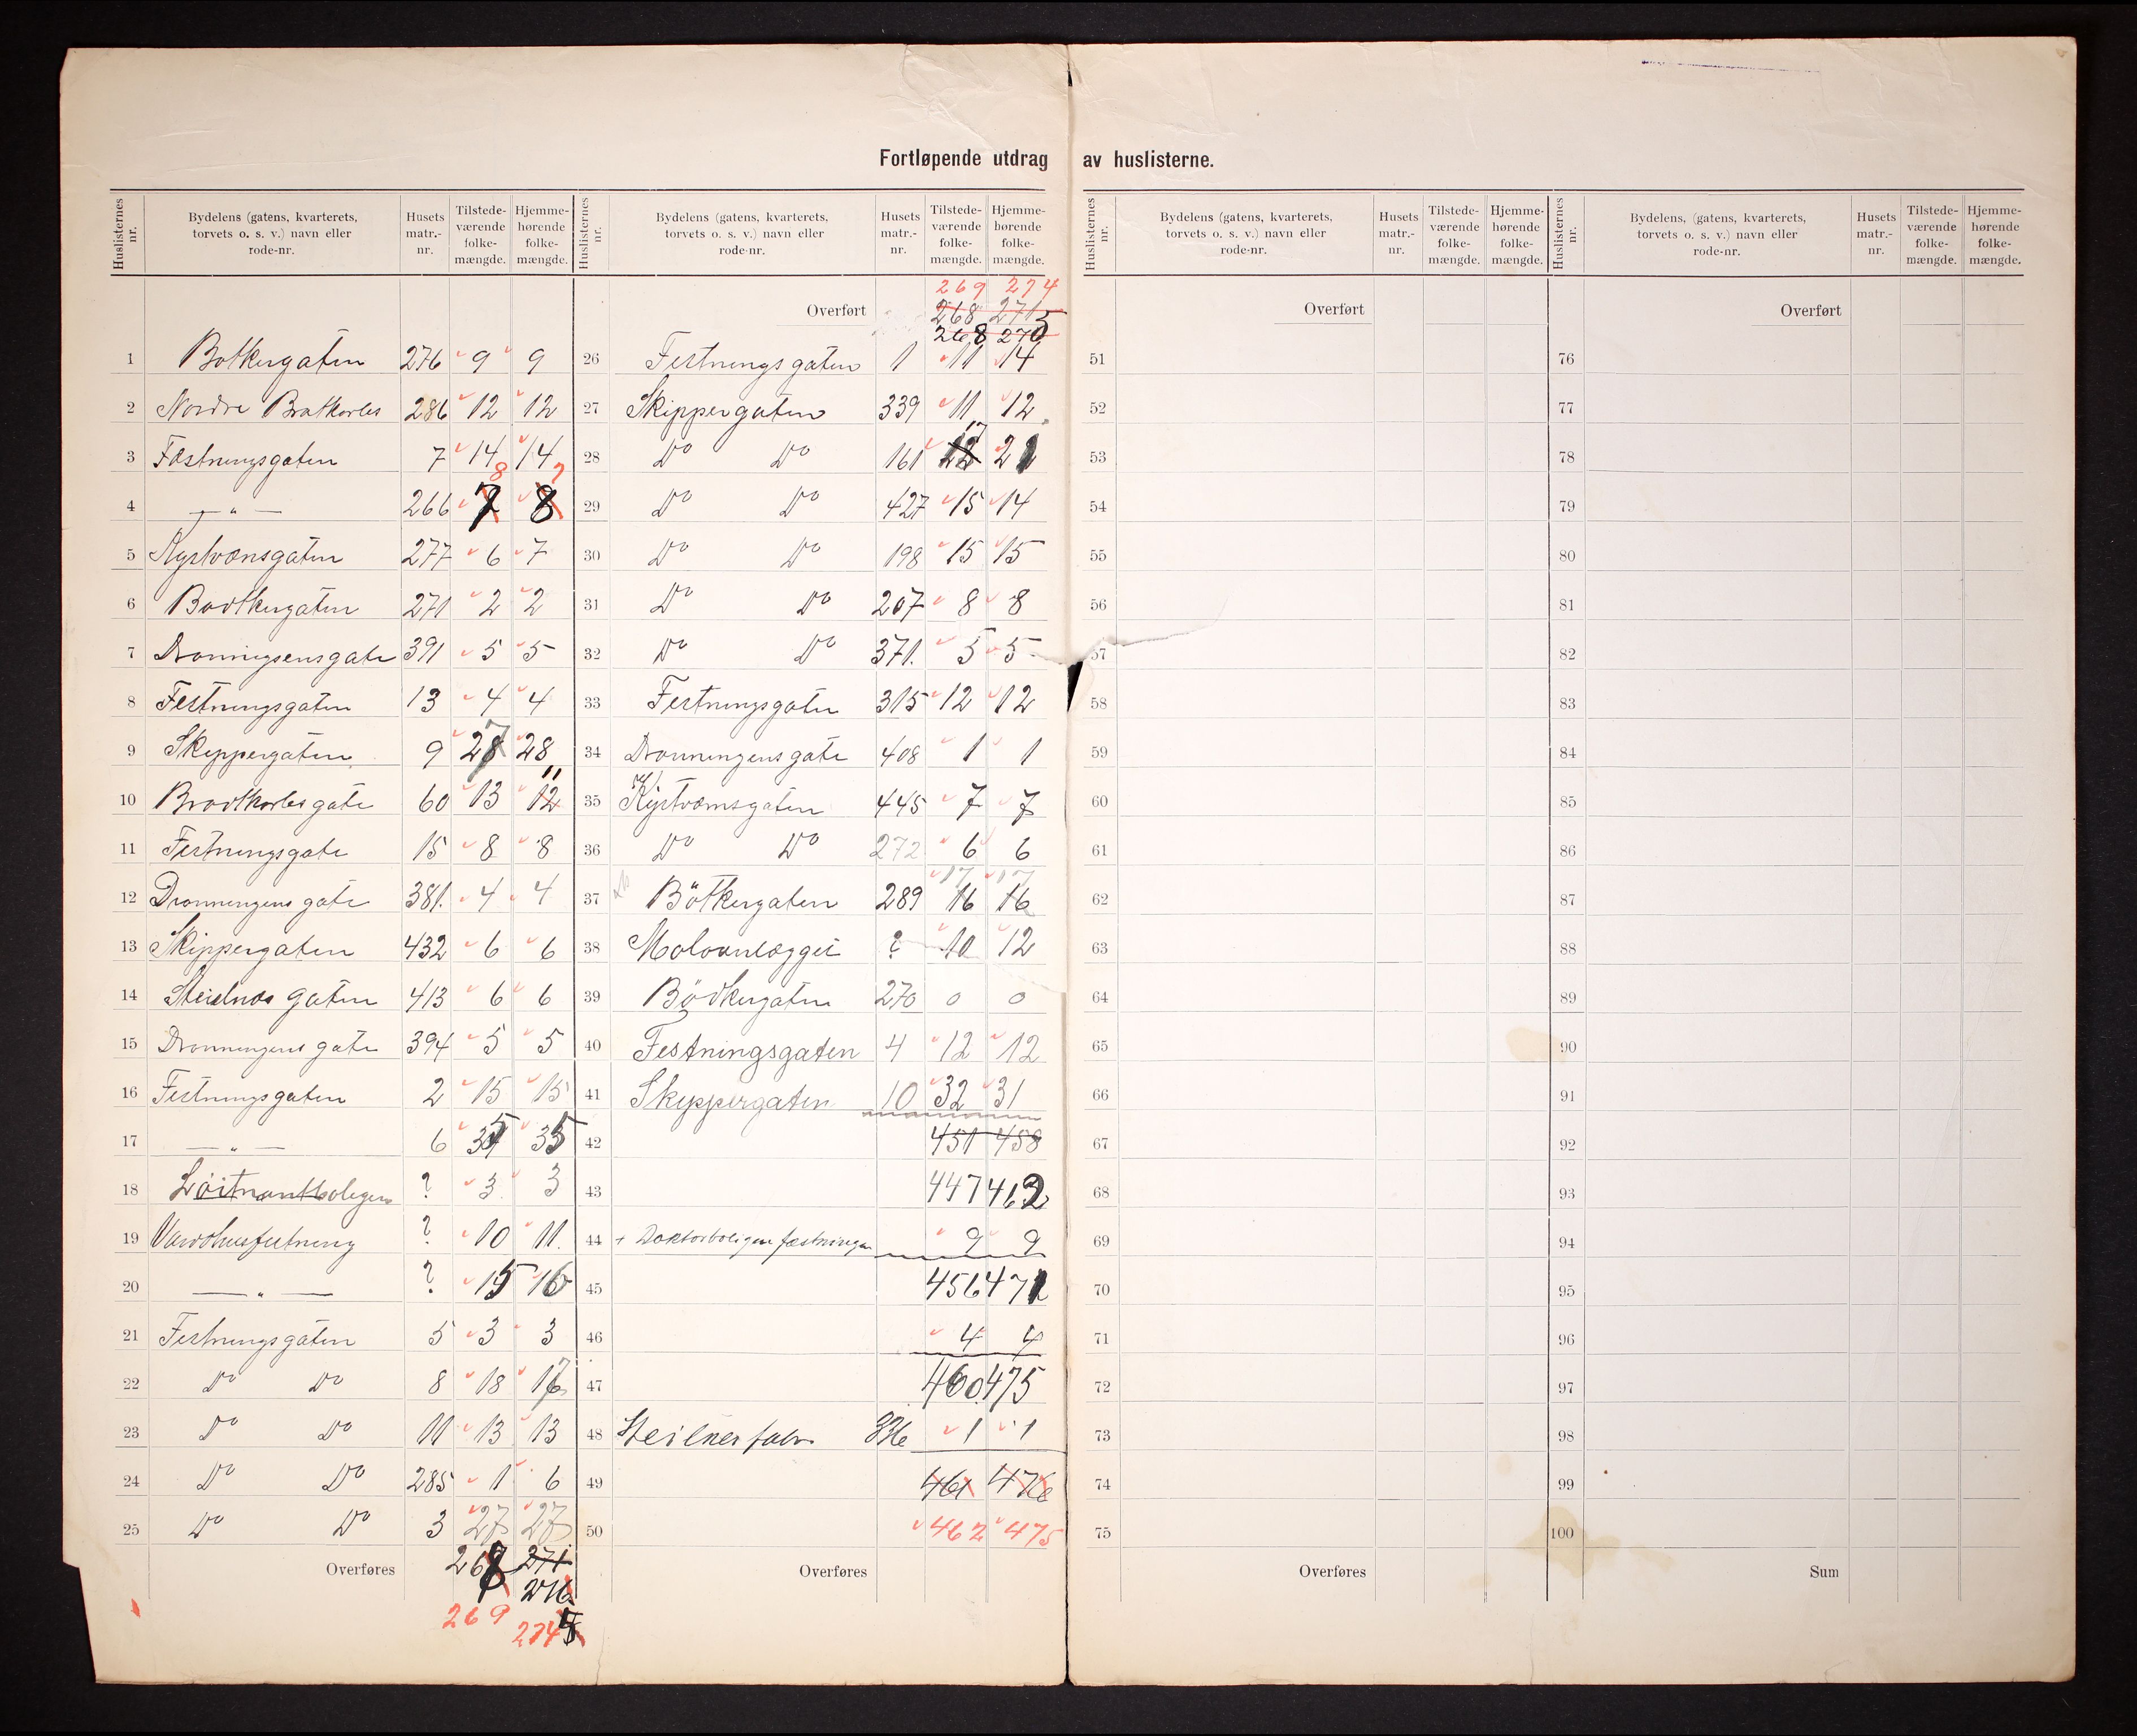 Fortløpende utdrag av huslisterne.
Huslisternes nr. Bydelens (gatens, kvarterets, torvets o. s. v.) navn eller rode-nr. Husets matr.-nr. Tilstede-værende folke-mængde. Hjemme-hørende folke-mængde.
1 Botkergaten 276 9 9
2 Nordre Bratkorbs 286 12 12
3 Fæstningsgaten 7 14 14
4 — " — 266 7 8 8 7
5 Kystvænsgaten 277 6 7
6 Bødkergaten 271 2 2
7 Dronnigsensgate 391 5 5
8 Festningsgaten 13 4 4
9 Skippergaten 9 27 28
10 Brodtkorbsgate 60 13 12 11
11 Festningsgate 15 8 8
12 Dronningens gate 381. 4 4
13 Skippergaten 432 6 6
14 Steilnæs gaten 413 6 6
15 Dronningens gate 394 5 5
16 Festningsgaten 2 15 15
17 — " — 6 35
18 Løitnantboligen ? 3 3
19 Vardøhusfestning ? 10 11.
20 — " — ? 15 16
21 Festningsgaten 5 3 3
22 Do Do 8 18 17
23 Do Do 11 13 13
24 Do Do 285 1 6
25 Do Do 3 27 27
Overføres 268 271
276
269 274
Huslisternes nr. Bydelens (gatens, kvarterets, torvets o. s. v.) navn eller rode-nr. Husets matr.-nr. Tilstede-værende folke-mængde. Hjemme-hørende folke-mængde.
269 274
Overført 268 271
268 275
26 Festnings gaten 1 11 14
27 Skippergaten 339 11 12
28 Do Do 161 17 21
29 Do Do 427 15 14
30 Do Do 198 15 15
31 Do Do 207 8 8
32 Do Do 371. 5 5
33 Festningsgaten 315 12 12
34 Dronningens gate 408 1 1
35 Kystværnsgaten 445 7 7
36 Do Do 272 6 6
37 Bötkergaten 289 16 16 17 17
38 Moloanlægget ? 10 12
39 Bödkergaten 270 0 0
40 Festningsgaten 4 12 12
41 Skippergaten 10 32 31
42 451 458
43 447 462
44 + Doktorboligen fæstningen 9 9
45 456 471
46 4 4
47 460. 475
48 Steilnesfabr. 336 1 1
49 461 476
50 462 475
Overføres
Huslisternes nr. Bydelens (gatens, kvarterets, torvets o. s. v.) navn eller rode-nr. Husets matr.-nr. Tilstede-værende folke-mængde. Hjemme-hørende folke-mængde.
Overført
51
52
53
54
55
56
57
58
59
60
61
62
63
64
65
66
67
68
69
70
71
72
73
74
75
Overføres
Huslisternes nr. Bydelens, (gatens, kvarterets, torvets o. s. v.) navn eller rode-nr. Husets matr.-nr. Tilstede-værende folke-mængde. Hjemme-hørende folke-mængde.
Overført
76
77
78
79
80
81
82
83
84
85
86
87
88
89
90
91
92
93
94
95
96
97
98
99
100
Sum